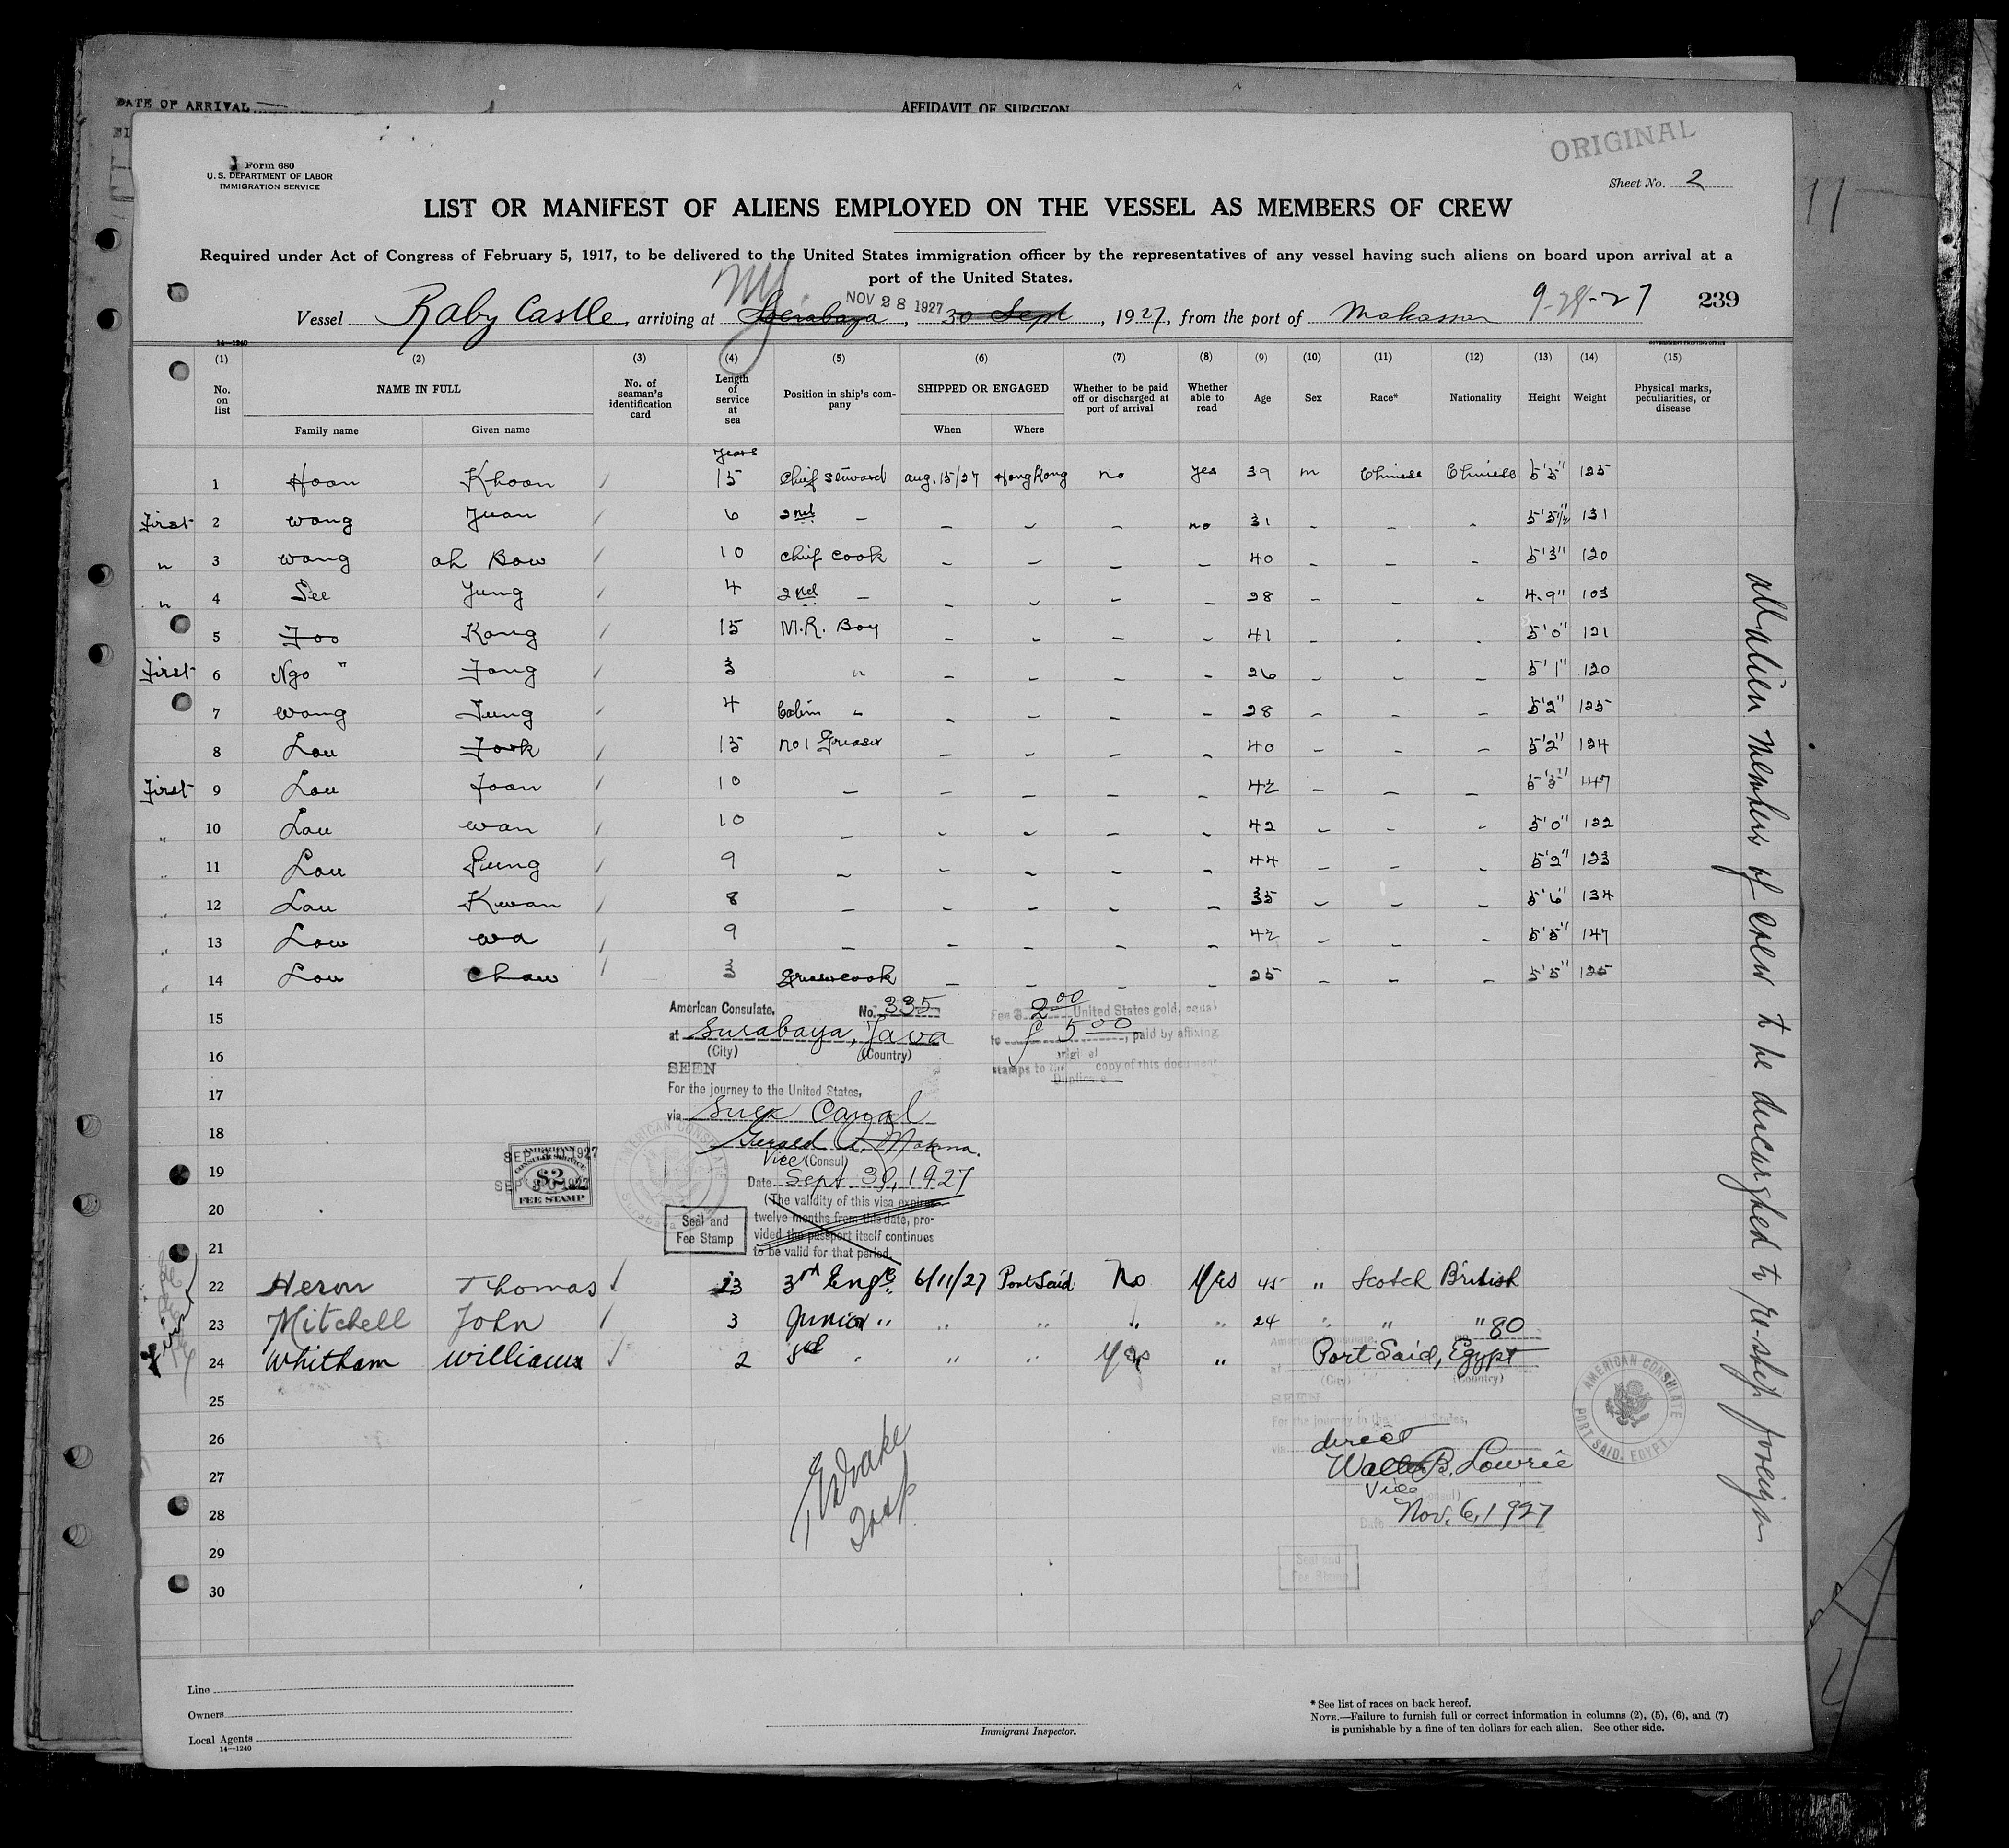 DATE OF ARRIVAL
AFFIDAVIT OF SURGEON
ORIGINAL
Form 680
U. S. DEPARTMENT OF LABOR
IMMIGRATION SERVICE
Sheet No. 2
11
LIST OR MANIFEST OF ALIENS EMPLOYED ON THE VESSEL AS MEMBERS OF CREW
Required under Act of Congress of February 5, 1917, to be delivered to the United States immigration officer by the representatives of any vessel having such aliens on board upon arrival at a
port of the United States.
NY
NOV 28 1927
Vessel Raby Castle, arriving at Soerabaya, 30 Sept, 1927, from the port of Makassar 9-28-27 239
14—1240
GOVERNMENT PRINTING OFFICE
(1) (2) (3) (4) (5) (6) (7) (8) (9) (10) (11) (12) (13) (14) (15)
No. on list NAME IN FULL No. of seaman's identification card Length of service at sea Position in ship's company SHIPPED OR ENGAGED Whether to be paid off or discharged at port of arrival Whether able to read Age Sex Race* Nationality Height Weight Physical marks, peculiarities, or disease
Family name Given name When Where
years
1 Hoan Khoon / 15 Chief Steward aug. 15/27 HongKong no yes 39 m Chinese Chinese 5'5" 125
First 2 Wong Yuan / 6 2nd – – – – no 31 – – – 5'5½ 131
" 3 Wong ah Bow / 10 Chief Cook – – – – 40 – – – 5'3" 120
" 4 See Yung / 4 2nd – – – – – 28 – – – 4.9" 103
5 Foo Kong / 15 M.R. Boy – – – – 41 – – – 5'0" 121
First 6 Ngo " Fong / 3 " – – – – 26 – – – 5'1" 120
7 Wong Tung / 4 Cabin " – – – – 28 – – – 5'2" 125
8 Lou Fook / 15 No 1 Greaser – – – – 40 – – – 5'2" 124
First 9 Lou Foon / 10 – – – – – 42 – – – 5'5" 147
" 10 Lau Wan / 10 – – – – – 42 – – – 5'0" 122
" 11 Lou Pung / 9 – – – – – 44 – – – 5'2" 123
" 12 Lau Kwan / 8 – – – – – 35 – – – 5'6" 134
" 13 Low Wa / 9 – – – – – 42 – – – 5'5" 147
" 14 Lou Chow / 3 Greaser Cook – – – – 25 – – – 5'5" 125
15
16
17
18
19
20
21
American Consulate, No. 335
at Surabaya, Java
(City) (Country)
SEEN
For the journey to the United States,
via Suez Canal
Vice (Consul)
Date Sept 30, 1927
(The validity of this visa expires
twelve months from this date, pro-
vided the passport itself continues
to be valid for that period.
Seal and
Fee Stamp
Fee $ 2.00 United States gold, equal
to f 5.00, paid by affixing
stamps to the original copy of this document
Duplicate
AMERICAN
CONSULAR SERVICE
$2
FEE STAMP
SEP 30 1927
SEP 30 1927
AMERICAN CONSULATE
First
22 Heron Thomas / 23 3rd Engr. 6/11/27 Port Said No Yes 45 " Scotch British
23 Mitchell John / 3 Junior " " " " " 24 " " "
24 Whitham William / 2 " " " Yes "
American Consulate, No. 80
at Port Said, Egypt
(City) (Country)
SEEN
For the journey to the United States,
via direct
Walter B. Lowrie
Vice (Consul)
Date Nov. 6, 1927
Seal and
Fee Stamp
AMERICAN CONSULATE
PORT SAID, EGYPT.
25
26
27
28
29
30
Drake
Insp
all alien members of crew to be discharged to re-ship foreign
Line
Owners
Local Agents
14—1240
Immigrant Inspector.
* See list of races on back hereof.
NOTE.—Failure to furnish full or correct information in columns (2), (5), (6), and (7)
is punishable by a fine of ten dollars for each alien. See other side.